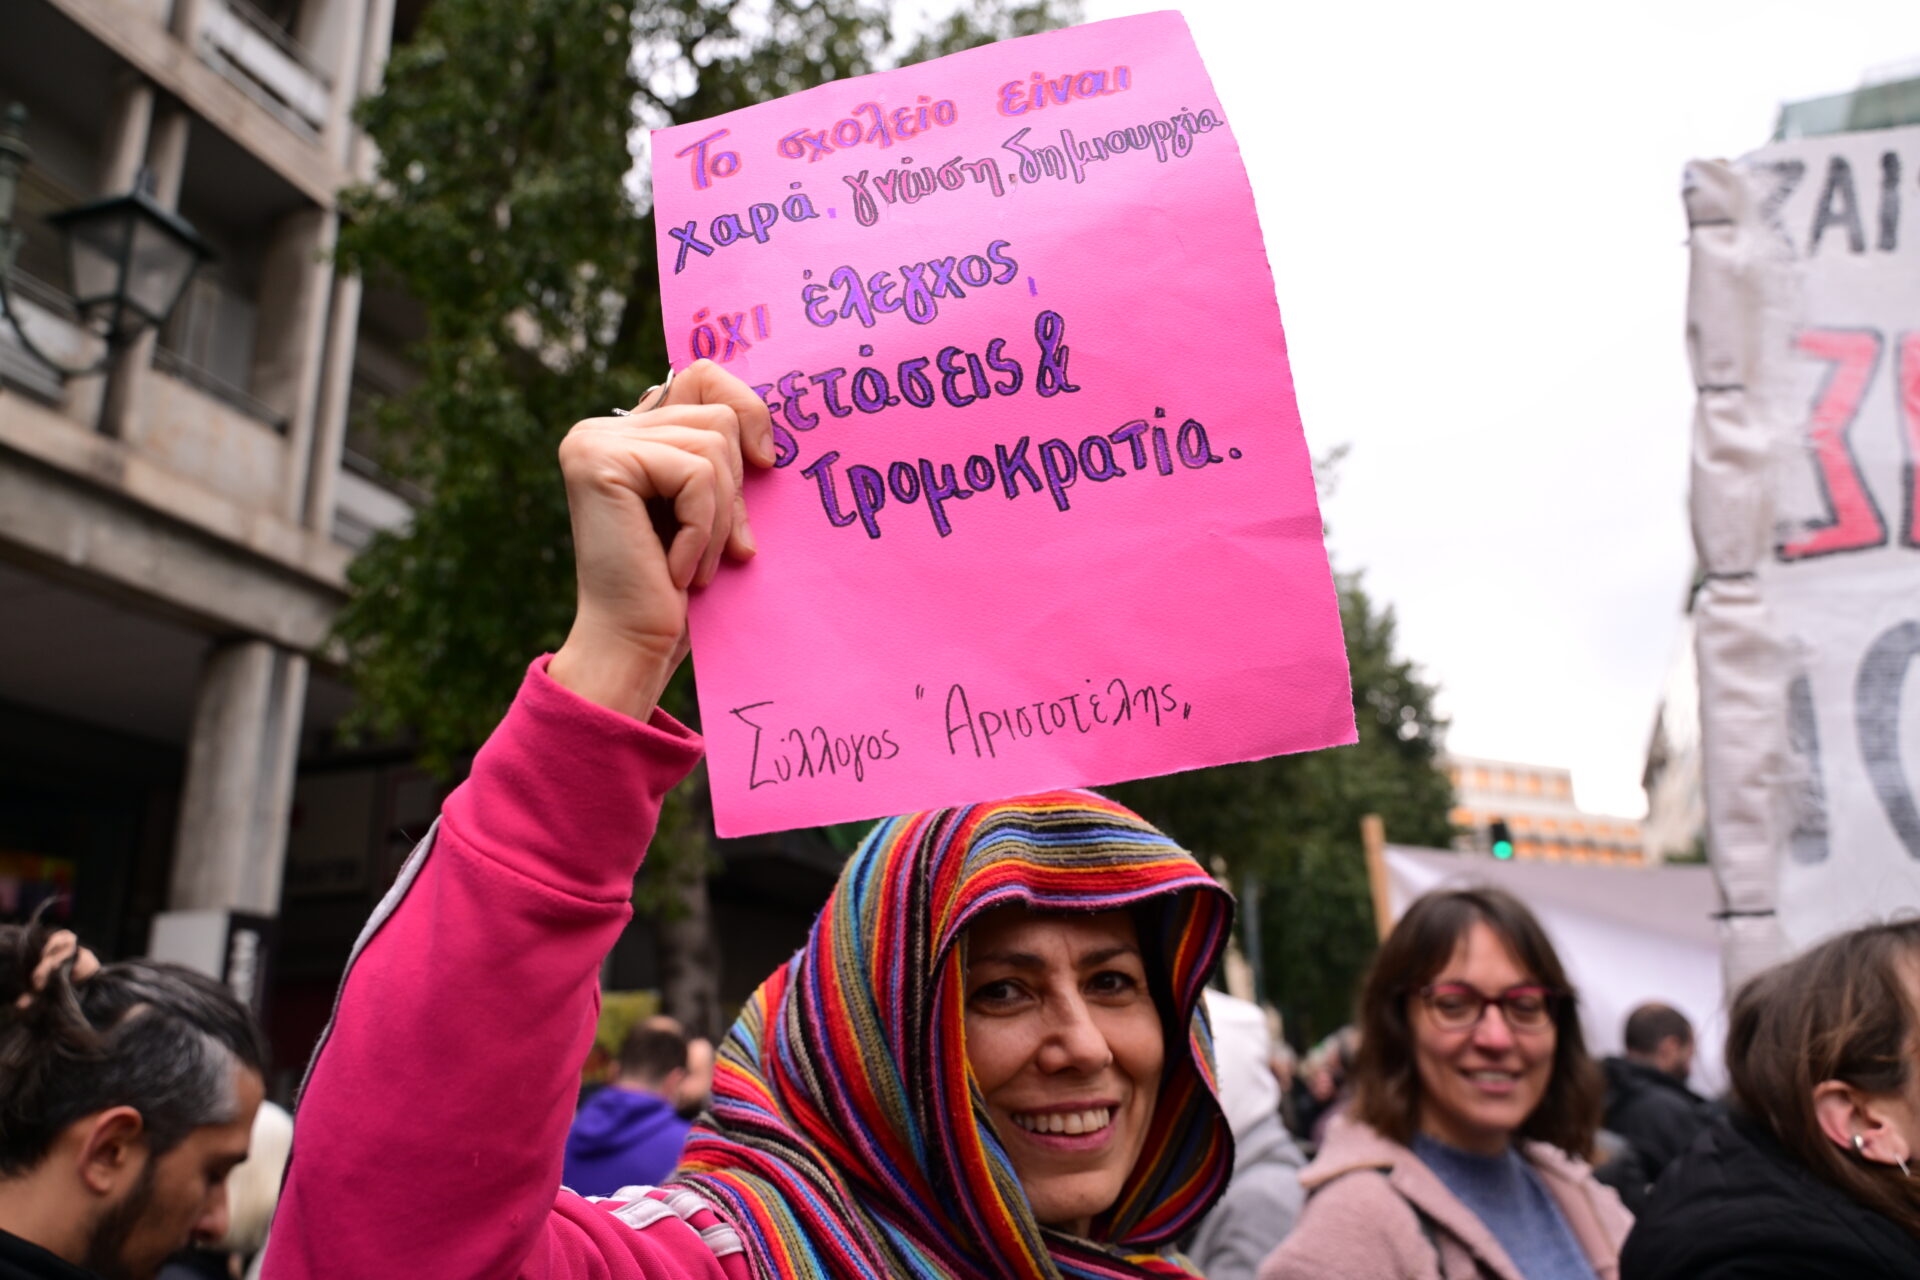 Το σχολείο είναι
χαρά, γνώση, δημιουργία
όχι έλεγχος,
ξετάσεις &
τρομοκρατία.
Σύλλογος "Αριστοτέλης"
ΑΙ